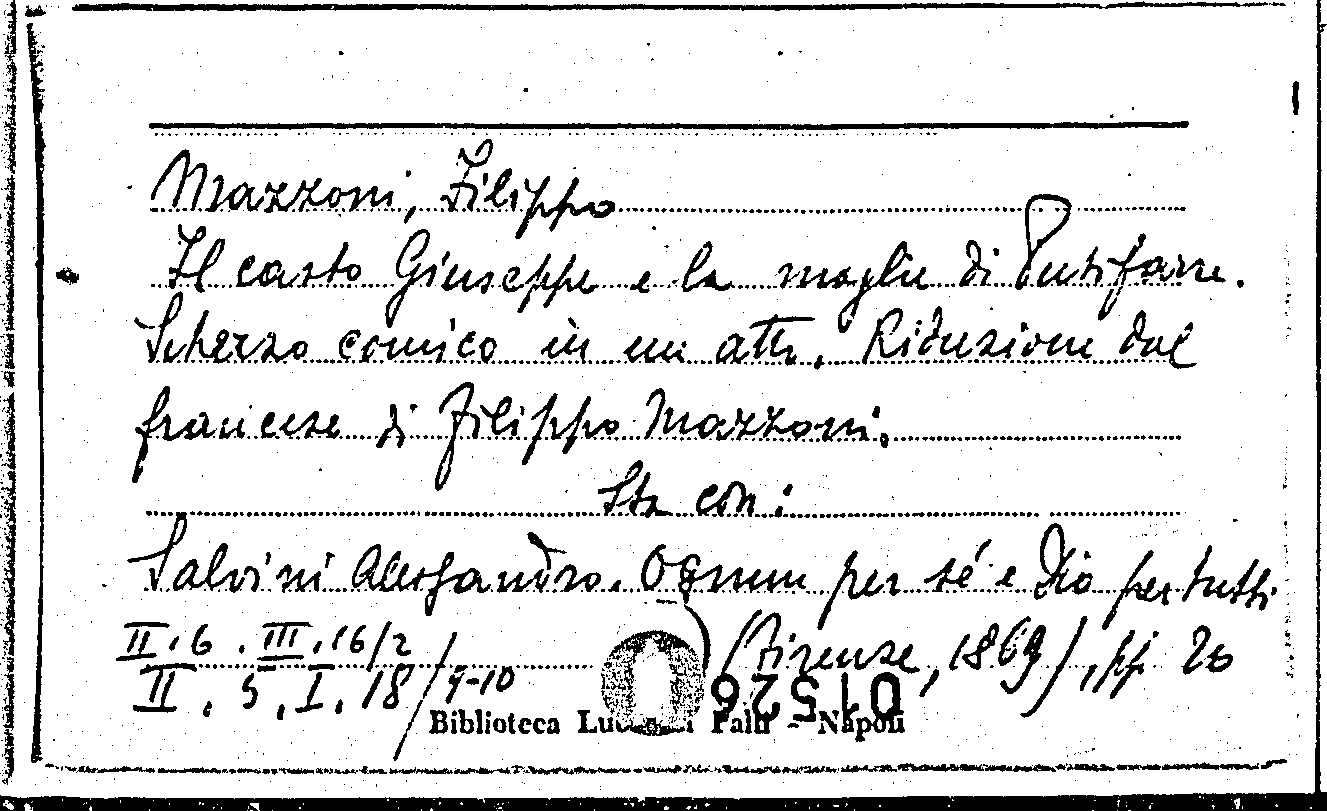 Mazzoni, Filippo
Il casto Giuseppe e la moglie di Putifarre.
Scherzo comico in un atto. Riduzione dal
francese di Filippo Mazzoni.
Sta con:
Salvini Alessandro. Ognun per sé e Dio per tutti
II.6.III.16/2 (Firenze, 1869), pp 20
II.5.I.18/9-10 015526
Biblioteca - Napoli